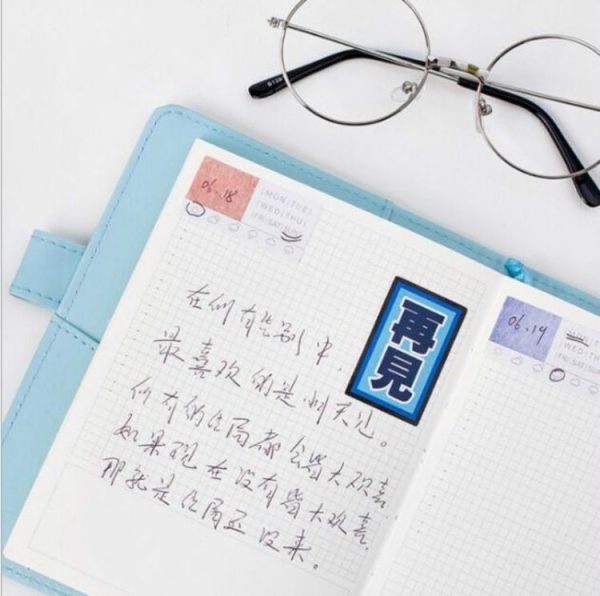 06.18
MON TUE
WED THU
FRI SAT SUN
在所有告别中,
最喜欢的是明天见。
所有的结局都会皆大欢喜,
如果现在没有皆大欢喜,
那就是结局还没来。
再見
06.19
MON T
WED THU
FRI SAT